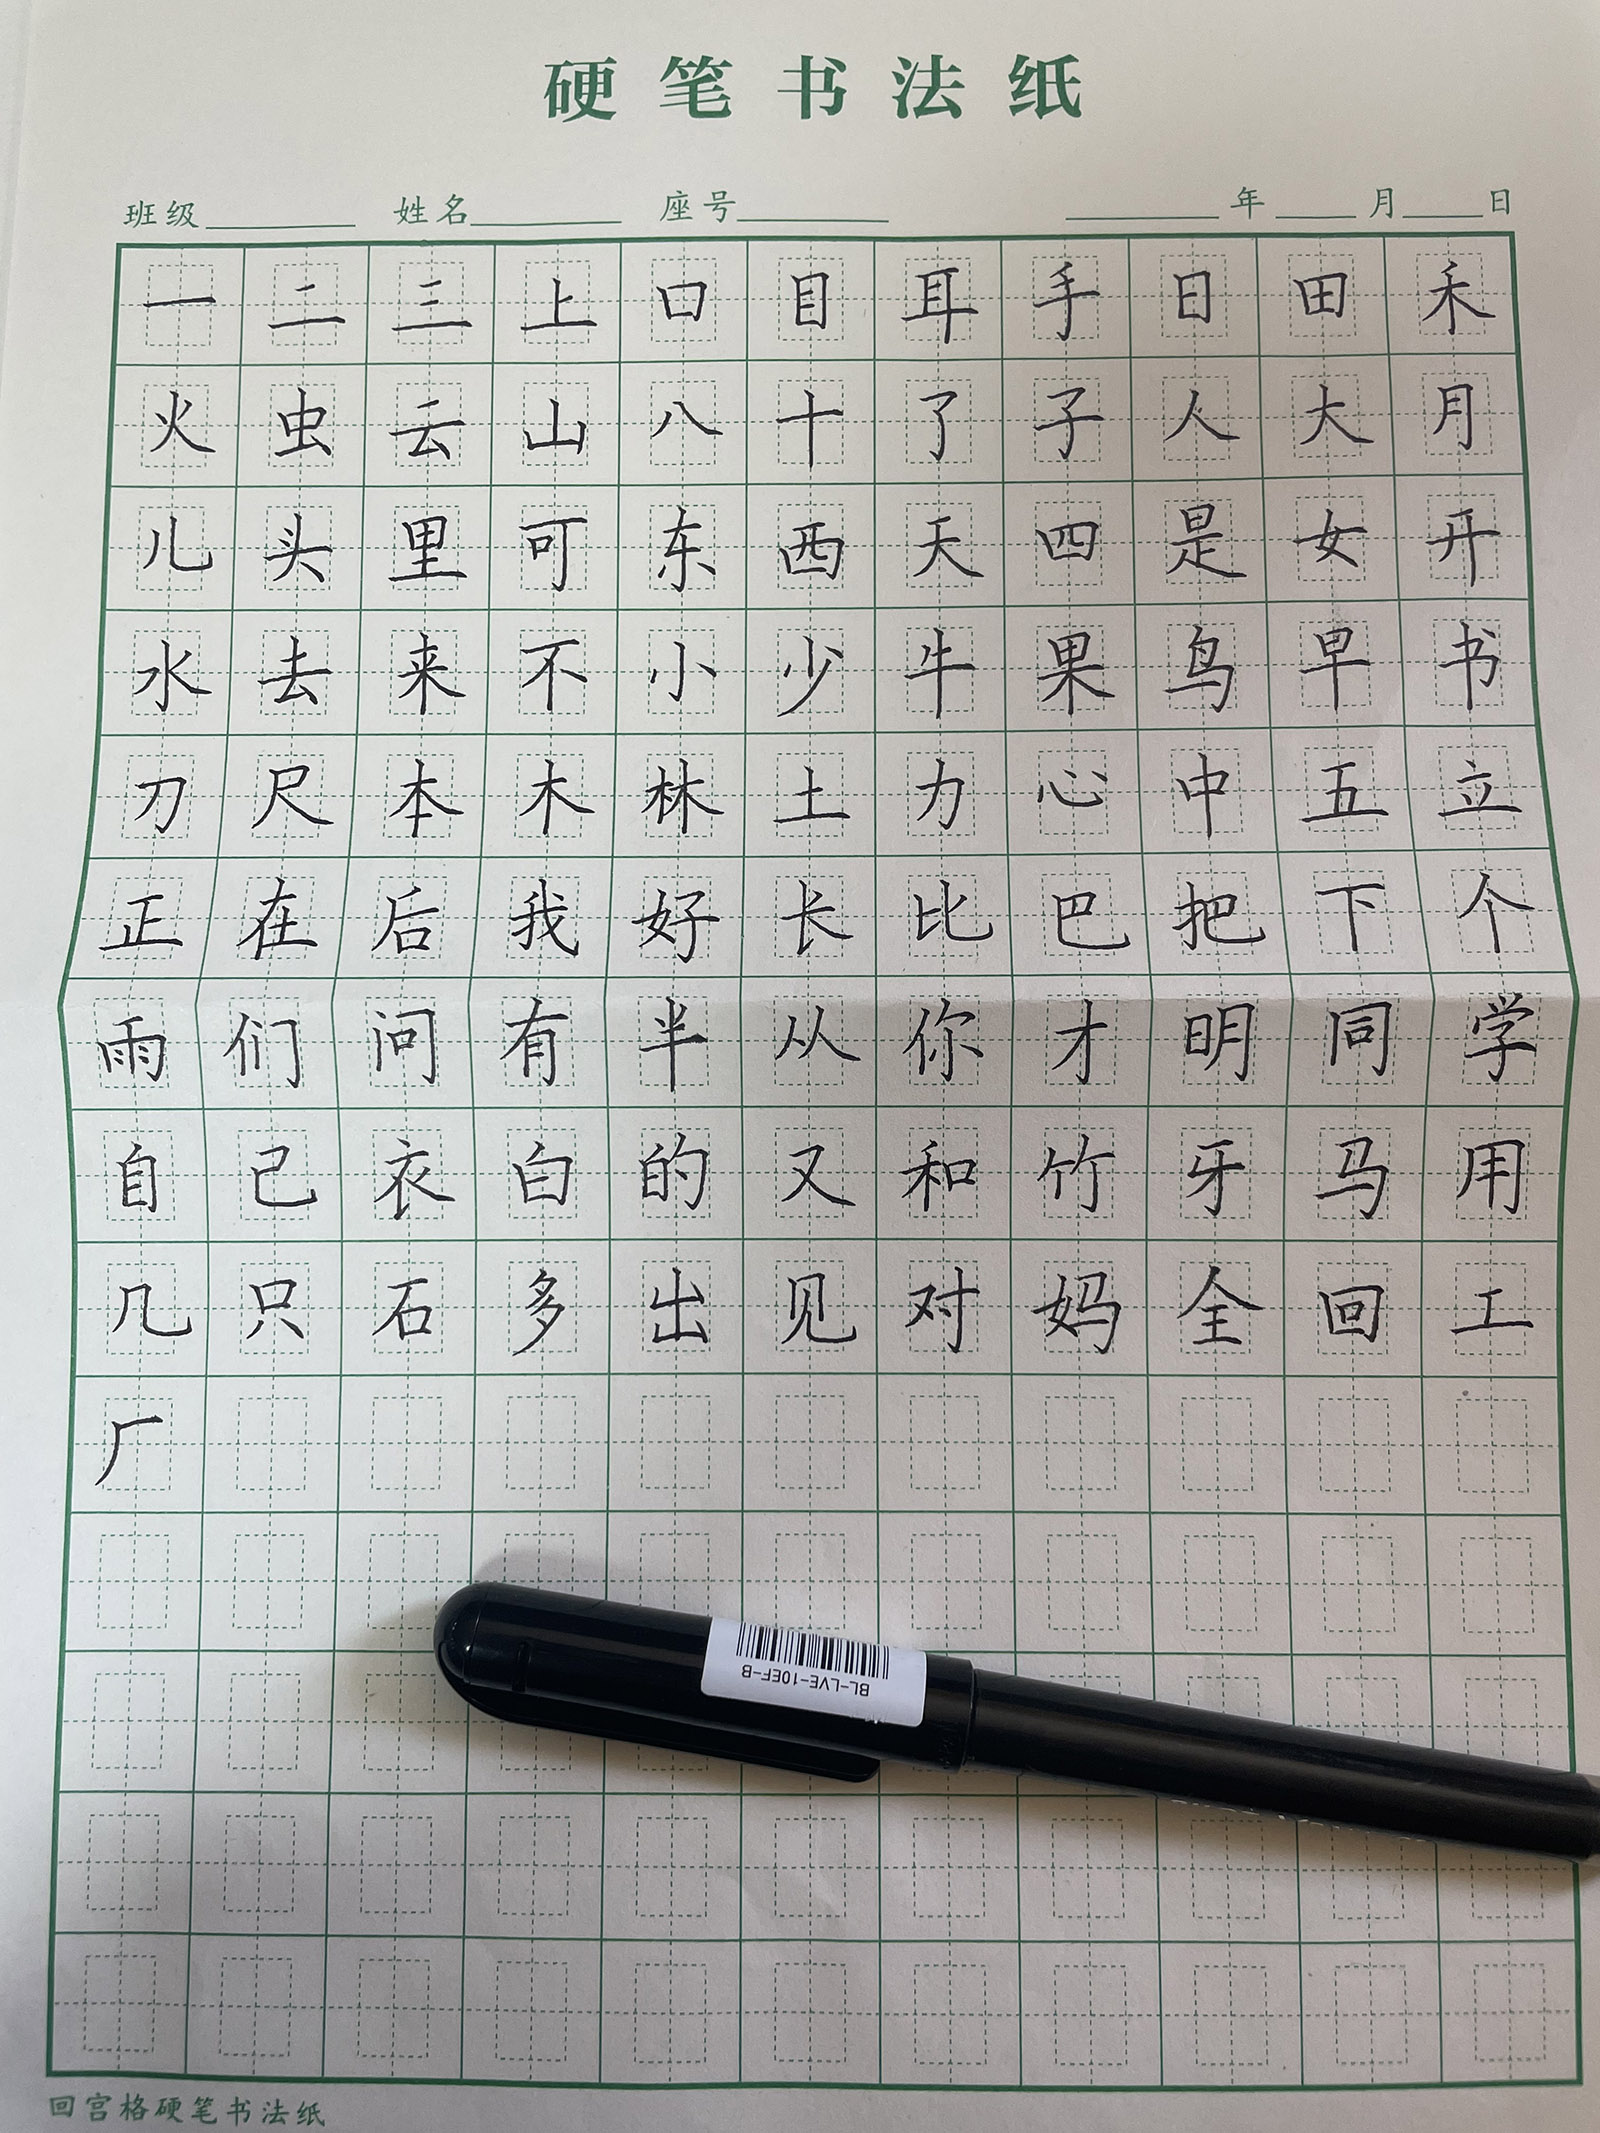 硬笔书法纸
班级 姓名 座号 年 月 日
一 二 三 上 口 目 耳 手 日 田 禾
火 虫 云 山 八 十 了 子 人 大 月
儿 头 里 可 东 西 天 四 是 女 开
水 去 来 不 小 少 牛 果 鸟 早 书
刀 尺 本 木 林 土 力 心 中 五 立
正 在 后 我 好 长 比 巴 把 下 个
雨 们 问 有 半 从 你 才 明 同 学
自 己 衣 白 的 又 和 竹 牙 马 用
几 只 石 多 出 见 对 妈 全 回 工
厂
BL-LVE-10EF-B
回宫格硬笔书法纸